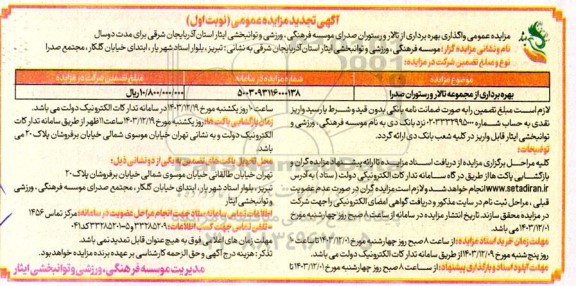 آگهی تجدید مزایده عمومی (نوبت اول)
مزایده عمومی واگذاری بهره برداری از تالار و رستوران صدرای موسسه فرهنگی، ورزشی و توانبخشی ایثار استان آذربایجان شرقی برای مدت دوسال
نام و نشانی مزایده گزار: موسسه فرهنگی، ورزشی و توانبخشی ایثار استان آذربایجان شرقی به نشانی: تبریز، بلوار استاد شهریار، ابتدای خیابان گلکار، مجتمع صدرا
نوع و مبلغ تضمین شرکت در مزایده:
موضوع مزایده
شماره مزایده در سامانه
مبلغ تضمین شرکت در مزایده
بهره برداری از مجموعه تالار و رستوران صدرا
5003093116000138
10/800/000/000 ریال
لازم است مبلغ تضمین را به صورت ضمانت نامه بانکی بدون قید و شرط یا رسید واریز
نقدی به حساب شماره نزد بانک دی به نام موسسه فرهنگی، ورزشی و
توانبخشی ایثار قابل واریز در کلیه شعب بانک دی ارائه گردد.
توضیحات:
کلیه مراحل برگزاری مزایده از دریافت اسناد مزایده تا ارائه پیشنهاد مزایده گران و
بازگشایی پاکت ها از طریق درگاه سامانه تدارکات الکترونیکی دولت (ستاد) به آدرس
www.setadiran.ir انجام خواهد شد و لازم است مزایده گران در صورت عدم عضویت
قبلی، مراحل ثبت نام در سایت مذکور و دریافت گواهی امضای الکترونیکی را جهت شرکت
در مزایده محقق سازند. تاریخ انتشار مزایده در سامانه از ساعت 8 صبح روز چهارشنبه مورخ
1403/12/01 می باشد.
مهلت زمان خرید اسناد مزایده: از ساعت 8 صبح روز چهارشنبه مورخ 1403/12/01 تا ساعت
روز پنج شنبه مورخ 1403/12/09 از طریق سامانه تدارکات الکترونیک دولت می باشد.
مهلت آپلود اسناد و بارگذاری پیشنهاد: از ساعت 8 صبح روز چهارشنبه مورخ 1403/12/01 تا
ساعت روز یکشنبه مورخ 1403/12/19 در سامانه تدارکات الکترونیک دولت می باشد.
زمان بازگشایی پاکت ها: روز یکشنبه مورخ 1403/12/19 ساعت 11 ظهر از طریق سامانه تدارکات
الکترونیک دولت و به نشانی تهران خیابان موسوی شمالی خیابان برفروشان پلاک 20 می
باشد.
محل تحویل پاکت های تضمین به یکی از دو نشانی ذیل:
تهران خیابان طالقانی خیابان موسوی شمالی خیابان برفروشان پلاک 20
تبریز، بلوار استاد شهریار، ابتدای خیابان گلکار، مجتمع صدرای موسسه فرهنگی، ورزشی
و توانبخشی ایثار
اطلاعات تماس سامانه ستاد جهت انجام مراحل عضویت در سامانه: مرکز تماس 1456
تلفن تماس جهت کسب اطلاعات:
مهلت زمان های اعلامی فوق به هیچ عنوان قابل تمدید نمی باشد.
تذکر: هزینه درج آگهی و حق الزحمه کارشناسی بر عهده برنده مزایده خواهد بود.
مدیریت موسسه فرهنگی، ورزشی و توانبخشی ایثار